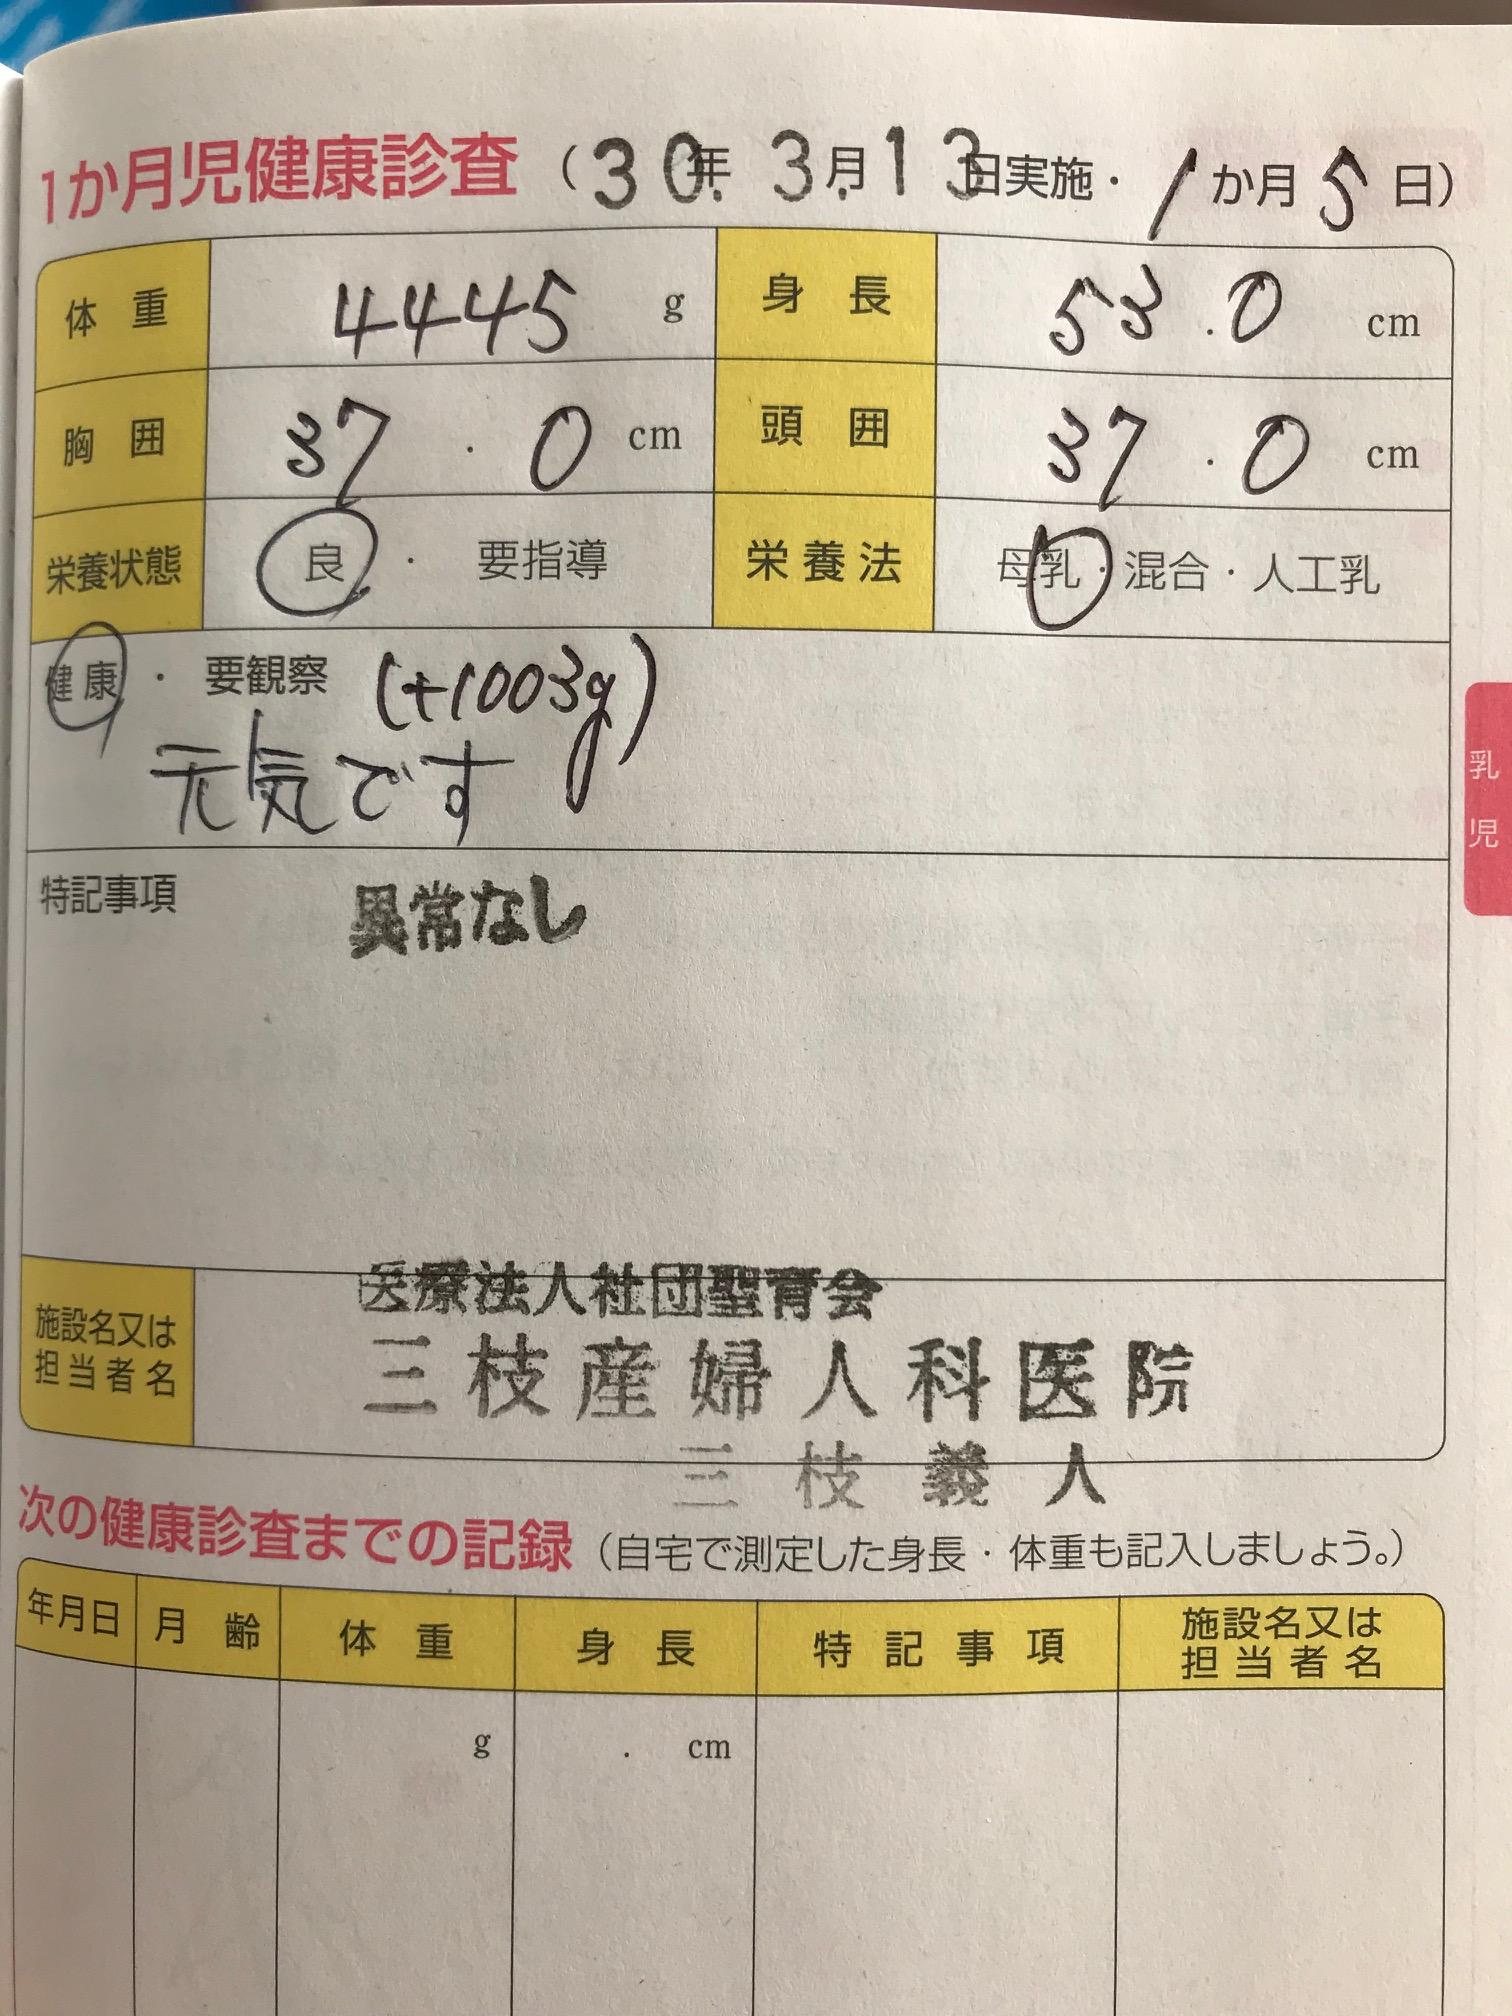 1か月児健康診査（30年3月13日実施・1か月5日）
体重 4445 g 身長 53.0 cm
胸囲 37.0 cm 頭囲 37.0 cm
栄養状態 良・要指導 栄養法 母乳・混合・人工乳
健康・要観察 (+1003g)
元気です
乳児
特記事項 異常なし
医療法人社団聖育会
施設名又は担当者名 三枝産婦人科医院
三枝義人
次の健康診査までの記録（自宅で測定した身長・体重も記入しましょう。）
年月日 月齢 体重 身長 特記事項 施設名又は担当者名
g . cm